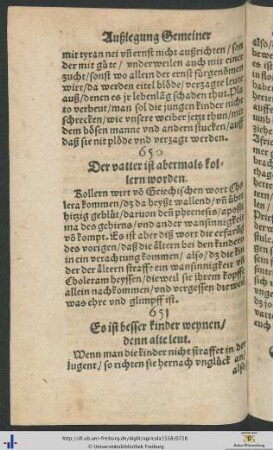 Außlegung Gemeiner
mit tyran nei vñ ernst nicht außrichten/
der mit güte/ vnderweilen auch mit einer
zucht/sonst wo allein der ernst fürgenommen
wirt/da werden eitel blöde/verzagte leute
auß/denen es jr lebenläg schaden thut. Pla
to verbeut/man sol die jungen kinder nicht
schrecken/wie vnsere weiber jetzt thun/mit
dem bösen manne vnd andern stucken/auß
daß sie nit plöde vnd verzagt werden.
650
Der vatter ist abermals kol-
lern worden.
Kollern wirt võ Griechischen wort Cho
lera kommen/dz da heyßt wallend/vñ über
hitzig geblüt/daruon deñ phrenesis/
ma des gehirns/vnd ander wansinnigkeit
võ kompt. Es ist aber diß wort die erfarũg
des vorigen/daß die ältern bei den kindern
in ein verachtung kommen/ also/dz die kin
der der ältern straffe ein wansinnigkeit vñ
Choleram heyssen/dieweil sie jhrem kopff
allein nachkommen/vnd vergessen
was ehre vnd glimpff ist.
651
Es ist besser kinder weynen/
denn alte leut.
Wenn man die kinder nicht straffet in der
jugent/ so richten sie hernach vnglück an/
also
http://dl.ub.uni-freiburg.de/diglit/agricola1558/0728
© Universitätsbibliothek Freiburg
Baden-Württemberg